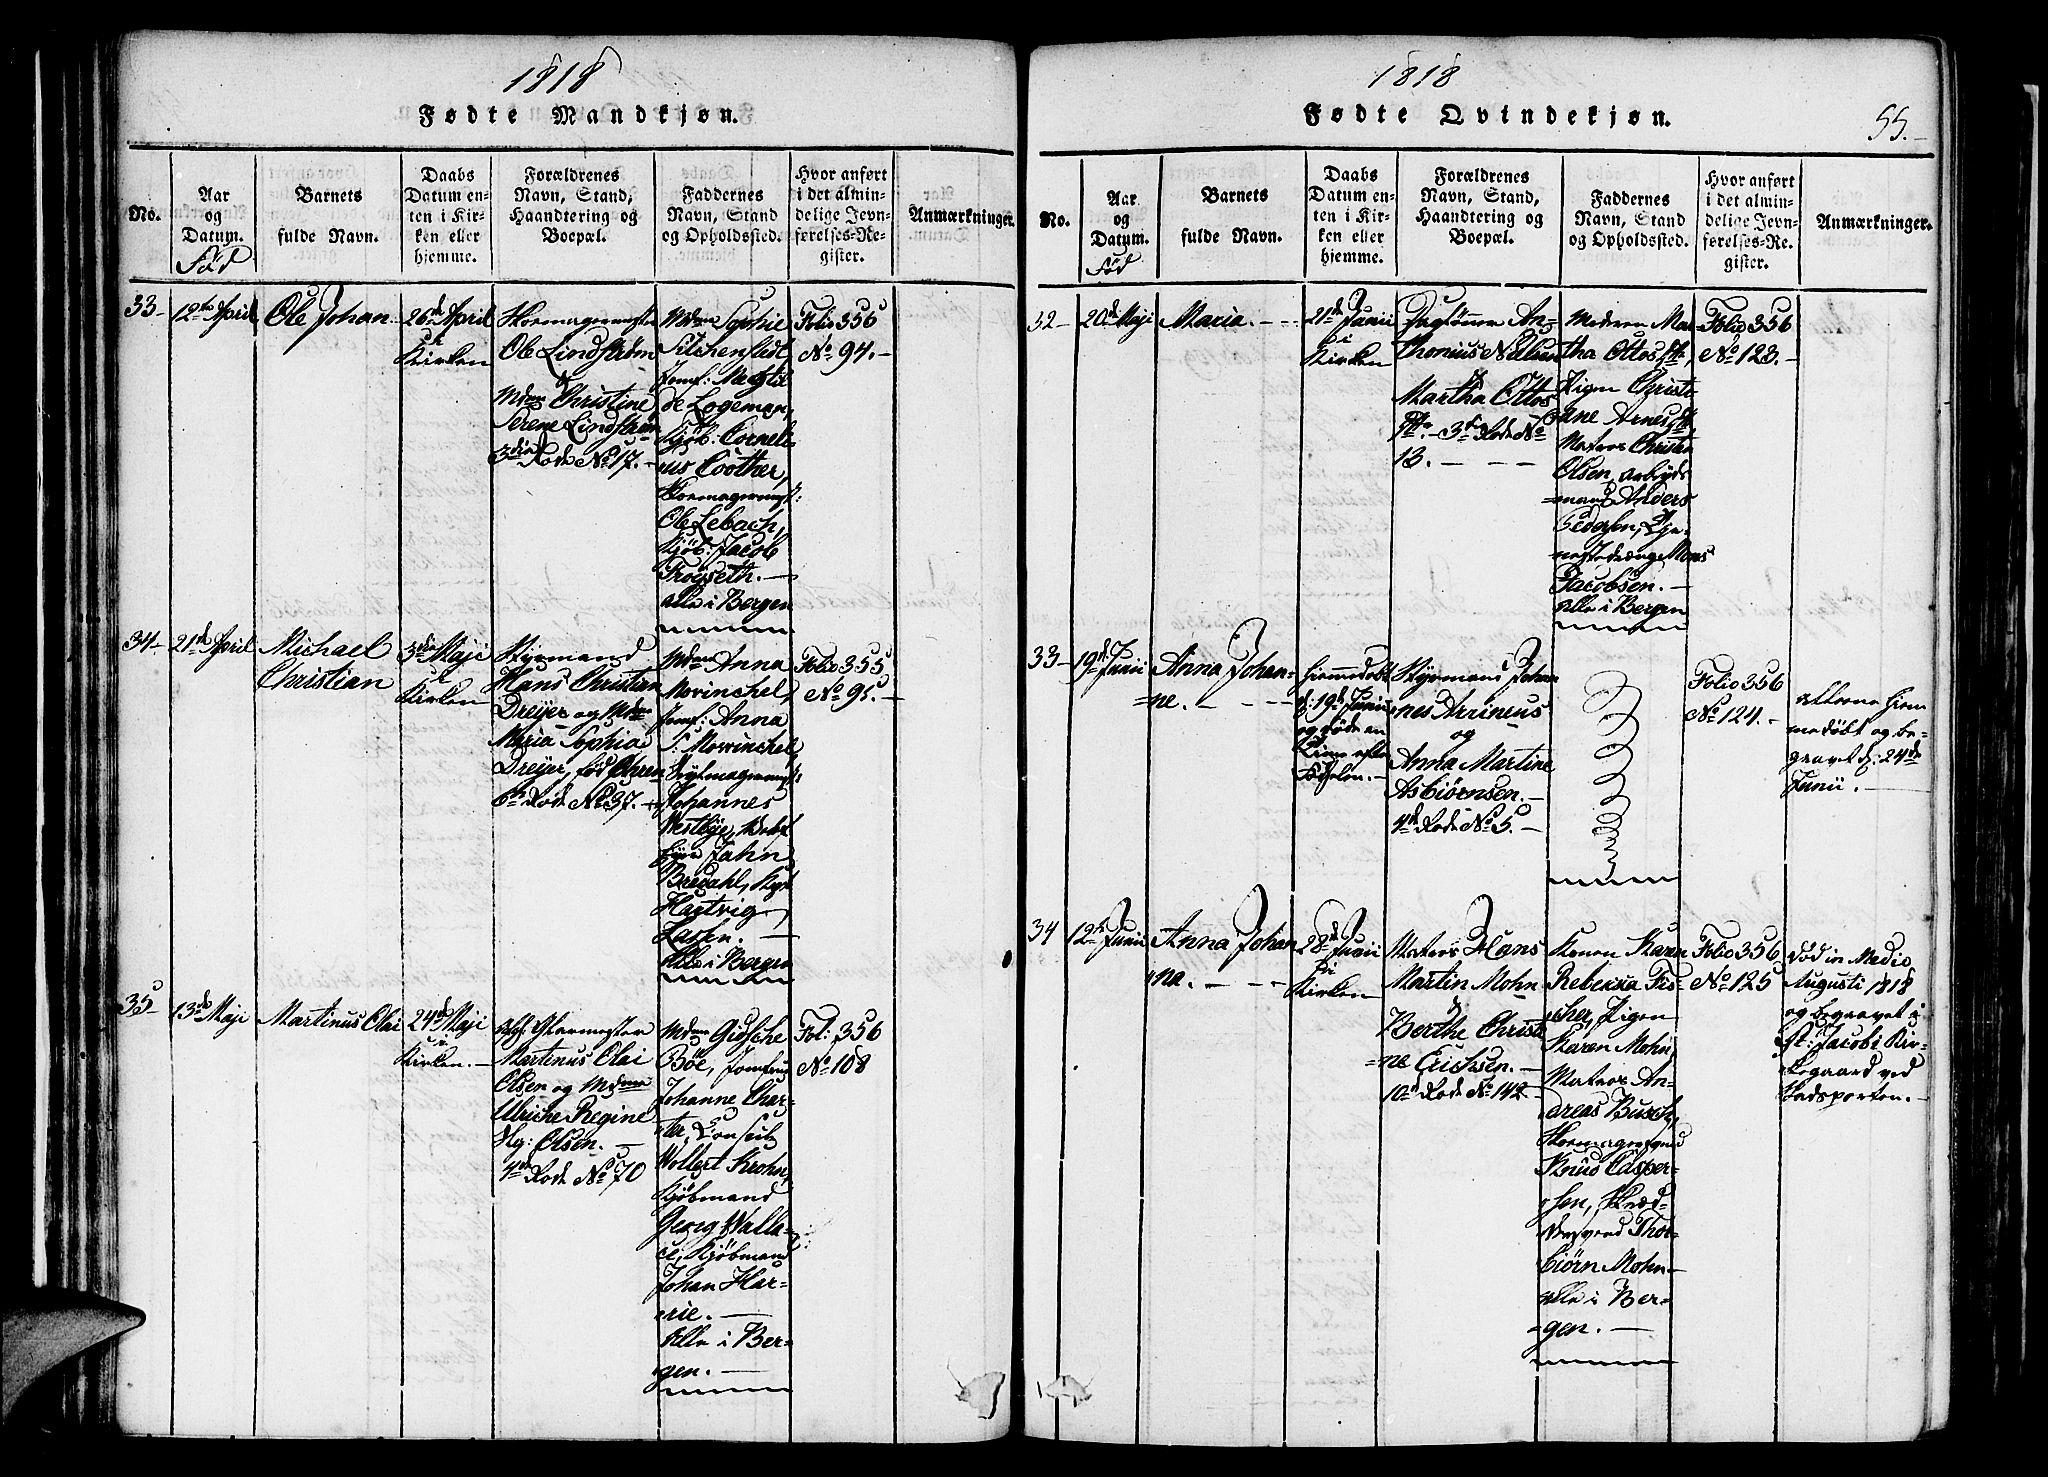 1818
Fødte Mandkjøn.
No.
Aar
og
Datum.
Fød
Barnets
fulde Navn.
Daabs
Datum en-
ten i Kir-
ken eller
hjemme.
Forældrenes
Navn, Stand,
Haandtering og
Boepæl.
Faddernes
Navn, Stand
og Opholdssted.
Hvor anført
i det almin-
delige Jevn-
førelses-Re-
gister.
Anmærkninger.
33
12te April
Ole Johan
26de April
i
Kirken
Skomagermester
Ole Lindstrøm
&
Mdme Christine
Serene Lindstrøm
3die Rode No 17.
Mdme Sophie
Jomf: Mechtil
de Logeman,
Kjöb: Corneli
us Coother,
Skomagermest:
Ole Lebach,
Kjöb: Jacob
Frøyseth.
alle i Bergen
Folio 356
No 94.
34
21de April
Michael
Christian
3die Maji
i
Kirken
Styrmand
Hans Christian
Dreyer og Mdme
Maria Sophia
Dreyer, fød Ehren
6te Rode No 37.
Mdme Anna
Morinchel,
Jomf: Anna
S: Morrinchel
Johannes
Westbye,
Jahn
Bredahl,
Hartvig
Lassen.
Alle i Bergen
Folio 355
No 95.
35
13de Maji
Martinus Olai
24de Maji
i
Kirken.
afg: Glarmester
Martinus Olai
Olsen og Mdme
Ulriche Regine
Olsen.
4de Rode No 70
Mdme Giösche
Böe, Jomfrue
Johanne Char-
ter, Consul
Wollert Krohn,
Kjöbmand
Georg Walla-
ce, Kjöbmand
Johan Har-
rie.
Alle i Ber-
gen.
Fol: 356
No 108
1818
Fødte Qvindekjøn.
55.
No.
Aar
og
Datum.
Fød
Barnets
fulde Navn.
Daabs
Datum en-
ten i Kir-
ken eller
hjemme.
Forældrenes
Navn, Stand,
Haandtering og
Boepæl.
Faddernes
Navn, Stand
og Opholdssted.
Hvor anført
i det almin-
delige Jevn-
førelses-Re-
gister.
Anmærkninger.
32
20de Maji
Maria.
21de Junii
i
Kirken
Daglønner An-
thonius Nielsen
&
Martha Ottos
Dtr. 3die Rode No
13.
Moderen Mar-
tha Ottos Dtr,
Pigen Christi
ane Arnes Dtr,
Matros Christen
Olsen, Arbeids
mand Anders
Pedersen,
Mons
Jacobsen.
alle i Bergen
Folio 356
No 123.
33
19de Junii
Anna Johan-
ne.
hjemmedøbt
d: 19de Junii
og døde en
Time efter
Fødselen.
Styrmand Johan
nes Arrineus
og
Anna Martine
Asbiørnsen.
4de Rode No 5.
Folio 356
No 124.
hiem
medöbt og be-
gravet d: 24de
Junii.
34
12te Junii
Anna Johan
na.
28de Junii
i
Kirken
Matros Hans
Martin Mohn
&
Berthe Christi
ne Erichsen.
10de Rode No 142
Konen Karen
Rebekka Fis-
cher, Pigen
Karen Mohn,
Matros An-
dreas Busch,
Skomagersvend
Knud Casper-
sen, Skræd-
dersvend Thor-
biørn Mohn
alle i Ber-
gen.
Folio 356
No 125
Död in Medio
Augusti 1818
og begravet i
St: Jacobi Kir-
kegaard ved
Stadsporten.